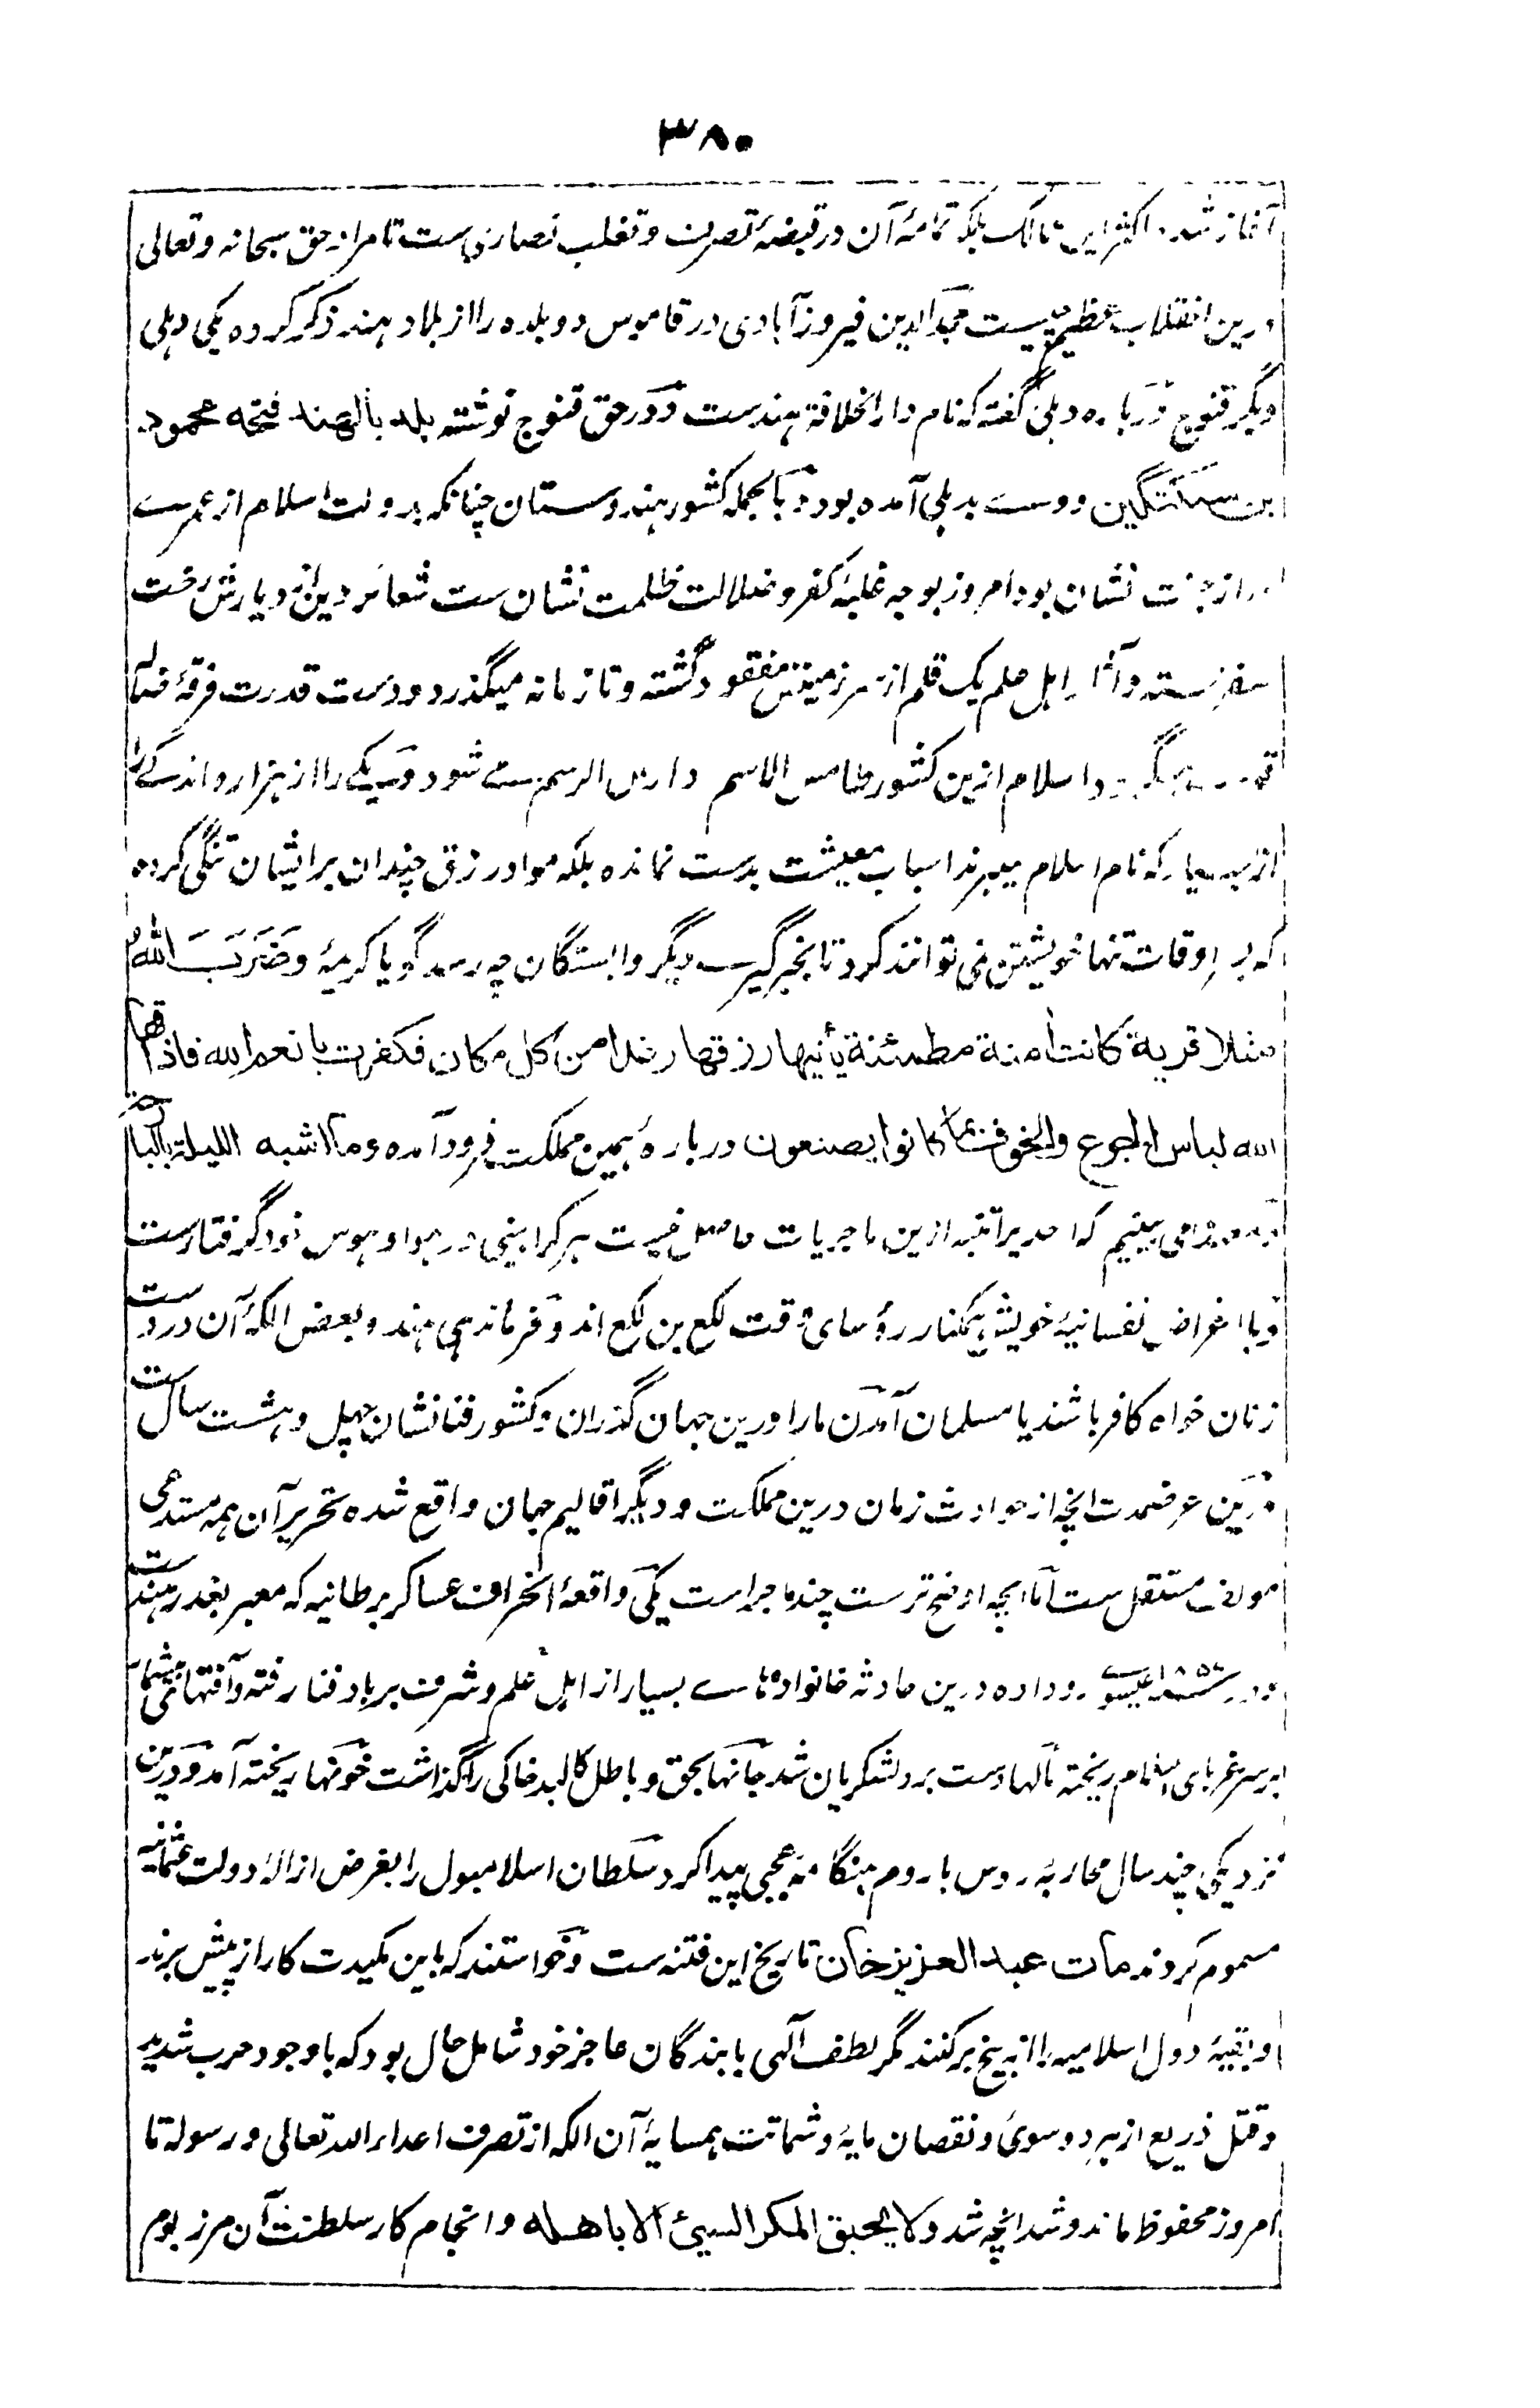 ۳۸۰
آغاز شد اکثر این ممالک بلکه تمامۀ آن در قبضۀ تصرف و تغلب نصاری ست تا مراد حق سبحانه و تعالی
درین انقلاب عظیم چیست مجد الدین فیروزآبادی در قاموس دو بلده را از بلاد هند ذکر کرده یکی دهلی
دیگر قنوج در باره دهلی گفته که نام دار الخلافة هندست و در حق قنوج نوشته بلد بالهند فتحه محمود
بن سبکتگین و وے بدهلی آمده بود و بالجمله کشور هندوستان چنانکه بدولت اسلام از عمرے
دراز جنت نشان بود امروز بوجه غلبۀ کفر و ضلالت ظلمت نشان ست شعائر دین از دیارش رخت
سفر بسته و آثار اهل علم یک قلم از سرزمینش مفقود گشته و تا زمانه میگذرد و دست قدرت فرقۀ ضاله
قوت میگیرد اسلام ازین کشور طامس الاسم دارس الرسم مے شود و یکے را از هزار و اندکے را
از بسیار که نام اسلام میبرند اسباب معیشت بدست نمانده بلکه مواد رزق چندان بر ایشان تنگی کرده
که بسر اوقات تنها خویشتن نمی توانند کرد تا بخبرگیرے دیگر وابستگان چه رسد گویا کریمۀ وَضَرَبَ اللهُ
مثلا قریة کانت آمنة مطمئنة یأتیها رزقها رغدا من کل مکان فکفرت بانعم الله فاذاقها
الله لباس الجوع والخوف بما کانوا یصنعون در بارۀ همین مملکت فرود آمده و ما اشبه اللیلة بالبارحة
می بینیم که احدیرا تنبه ازین ماجریات حاصل نیست هر کرا بینی در هوا و هوس خود گرفتارست
و با اغراض نفسانیۀ خویش همکنار رؤسای وقت لکع بن لکع اند و فرماندهی هند و بعض الکۀ آن در دست
زنان خواه کافر باشند یا مسلمان آمدن ما را درین جهان گذران و کشور فنا نشان چهل و هشت سال ست
درین عرض مدت انچه از حوادث زمان درین مملکت و دیگر اقالیم جهان واقع شده تحریر آن همه مستدعی
مولف مستقل ست اما انچه اوضح ترست چند ماجراست یکی واقعۀ انحراف عساکر برطانیه که معبر بغدر هندست
و در سنه ۱۸۵۷ عیسوی روداده درین حادثه خانوادهاے بسیار از اهل علم و شرف برباد فنا رفته و آفتهای
بر سر غربای اسلام ریخته مالها دست برد لشکریان شد جانها بحق و باطل کالبد خاکی را گذاشت خونها ریخته آمد و درین
نزدیکی چند سال محاربۀ روس با روم هنگامۀ عجبی پیدا کرد سلطان اسلامبول را بغرض ازالۀ دولت عثمانیه
مسموم کردند مات عبد العزیز خان تاریخ این فتنه ست و خواستند که باین مکیدت کار از پیش برند
و بقیۀ دول اسلامیه را از بیخ برکنند مگر لطف الٰهی با بندگان عاجز خود شامل حال بود که باوجود حرب شدید
و قتل ذریع از هر دو سوی و نقصان مایه و شماتت همسایۀ آن الکه از تصرف اعداء الله تعالی و رسوله تا
امروز محفوظ ماند و شد انچه شد ولا یحیق المکر السیئ الا باهله و انجام کار سلطنت آن مرز بوم